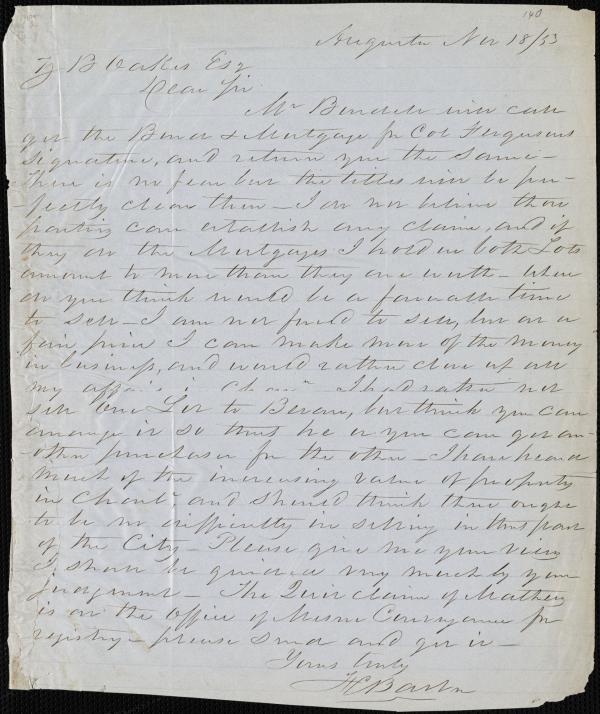 140
Augusta Nov 18/53
Z B Oakes Esq
Dear Sir
Mr Burdell will call
get the Bond & Mortgage for Col Fergusons
signature, and return you the same —
There is no fear but the titles will be per-
fectly clear then — I do not believe those
parties can establish any claim, and if
they do the Mortgages I hold on both Lots
amount to more than they are worth — When
do you think would be a favorable time
to sell — I am not forced to sell, but at a
fair price I can make more of the money
in business, and would rather close up all
my affairs in Charn I had rather not
sell one Lot to Beran, but think you can
arrange it so that he or you can get an-
other purchaser for the other — I have heard
much of the increasing value of property
in Charln and should think there ought
to be no difficulty in selling in this part
of the City — Please give me your views
I shall be guided very much by your
judgment — The Quit claim of Mathew
is at the office of Mesne Conveyance for
registry — please send and get it —
Yours truly